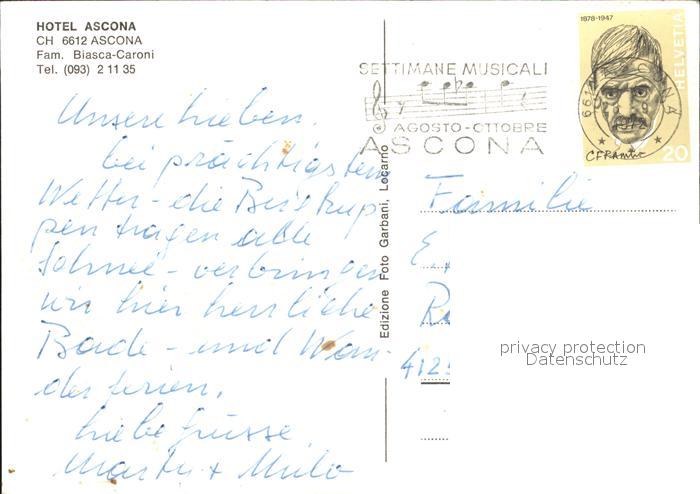 HOTEL ASCONA
CH 6612 ASCONA
Fam. Biasca-Caroni
Tel. (093) 2 11 35
Unsere Lieben.
bei prächtigstem
Wetter - die Bergkup-
pen tragen alle
Schnee - verbringen
wir hier herrliche
Bade- und Wan-
derferien.
Liebe Grüsse
+ Milo
Edizione Foto Garbani, Locarno
SETTIMANE MUSICALI
AGOSTO - OTTOBRE
ASCONA
1878-1947
HELVETIA
C F Ramuz
20
Familie
E
412
privacy protection
Datenschutz